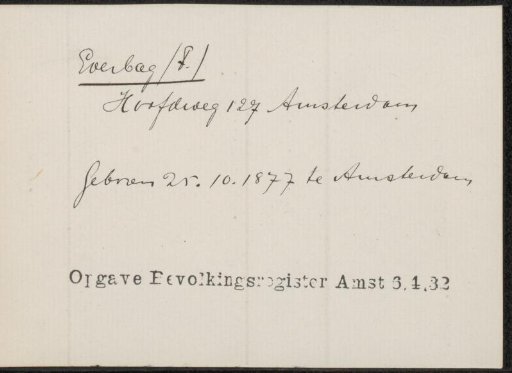 Everbag (F.)
Hoofdweg 127 Amsterdam
geboren 25.10.1877 te Amsterdam
Opgave Bevolkingsregister Amst 6.4.32